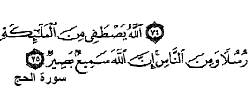 ﴿٧٤﴾ ٱللَّهُ يَصْطَفِى مِنَ ٱلْمَلَٰٓئِكَةِ
رُسُلًا وَمِنَ ٱلنَّاسِ إِنَّ ٱللَّهَ سَمِيعٌۢ بَصِيرٌ ﴿٧٥﴾
سورة الحج